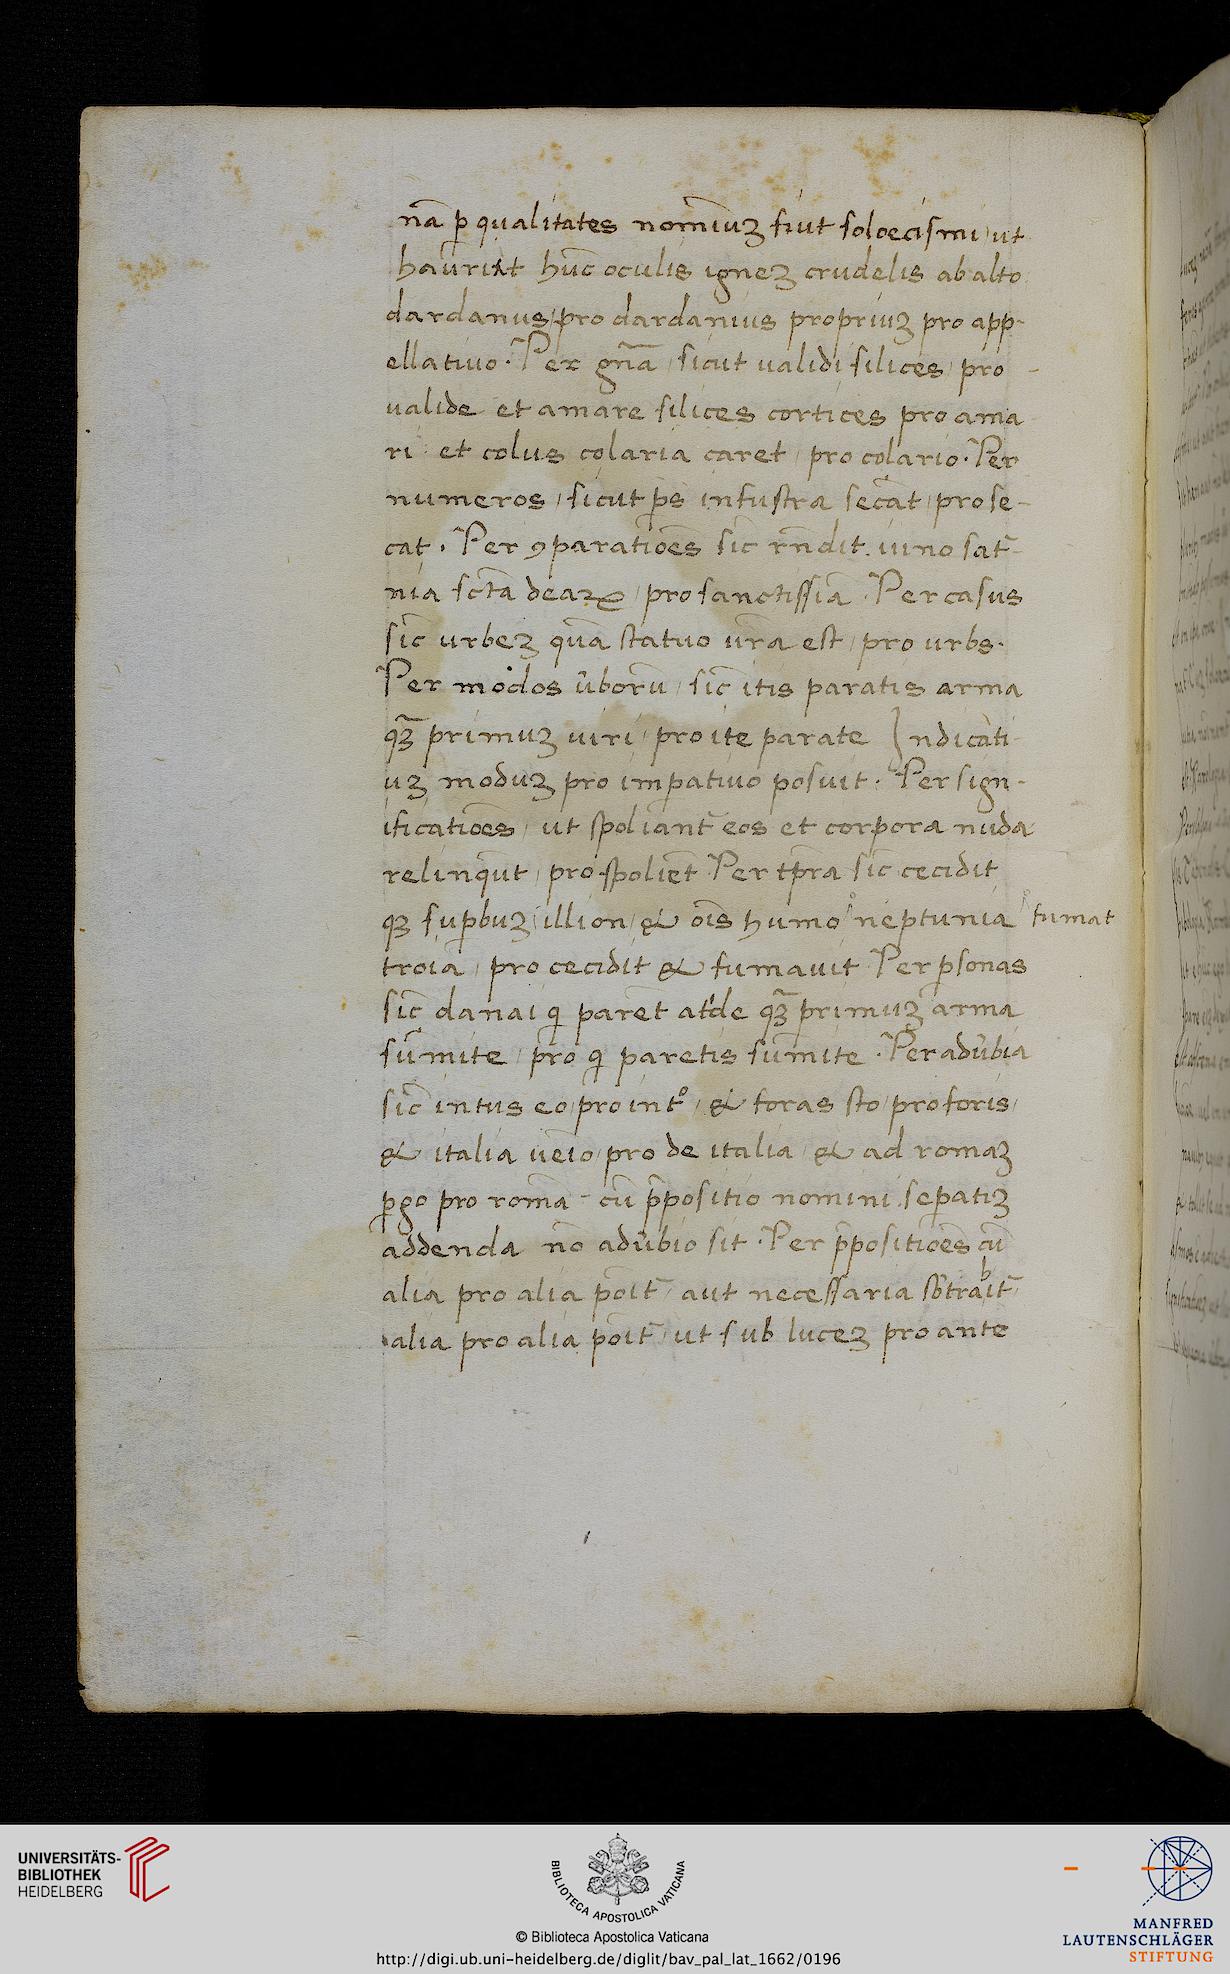 nā p̱ qualitates nomīuʒ fiut soloecismi, ut
haurirt huc̄ oculis igneʒ crudelis ab alto
dardanus, pro dardanius propriuʒ pro app-
ellativo. Per gn̄a, sicut validi silices, pro
valide et amare silices cortices pro ama
ri et colus colaria caret, pro colario. Per
numeros, sicut ps̄ infustra secāt, pro se-
cat. Per ꝯparatiōes sic̄ rn̄dit. iuno sat̄-
nia sctā deaꝝ, pro sanctissīa. Per casus
sic̄ urbeʒ quā statuo ur̄a est, pro urbs.
Per modos ūborū, sic̄ itis paratis arma
qʒ̄ primuʒ viri, pro ite parate Indicati
uʒ moduʒ pro imꝑativo posuit. Per sign-
ificatiōes, ut spoliant̄ eos et corpora nuda
relinqūt, pro spoliēt Per tp̄ra sic̄ cecidit
qʒ suꝑbuʒ illion, & ois̄ humo neptunia fumat
troia, pro cecidit & fumavit Per ꝑsonas
sic̄ danai qi parēt at'de qʒ̄ primuʒ arma
sūmite, pro qi paretis sūmite. Per adūbia
sic̄ intus eo, pro intº, & foras sto, pro foris,
& italia ueīo, pro de italia, & ad romaʒ
ꝑgo pro romā - cū p̄positio nomini seꝑatiʒ
addenda nō adūbio sit. Per p̄positiōes cū
alia pro alia pōit̄, aut necessaria sb̄trabit̄,
alia pro alia pōit̄, ut sub luceʒ pro ante
UNIVERSITÄTS-
BIBLIOTHEK
HEIDELBERG
BIBLIOTECA APOSTOLICA VATICANA
© Biblioteca Apostolica Vaticana
http://digi.ub.uni-heidelberg.de/diglit/bav_pal_lat_1662/0196
MANFRED
LAUTENSCHLÄGER
STIFTUNG